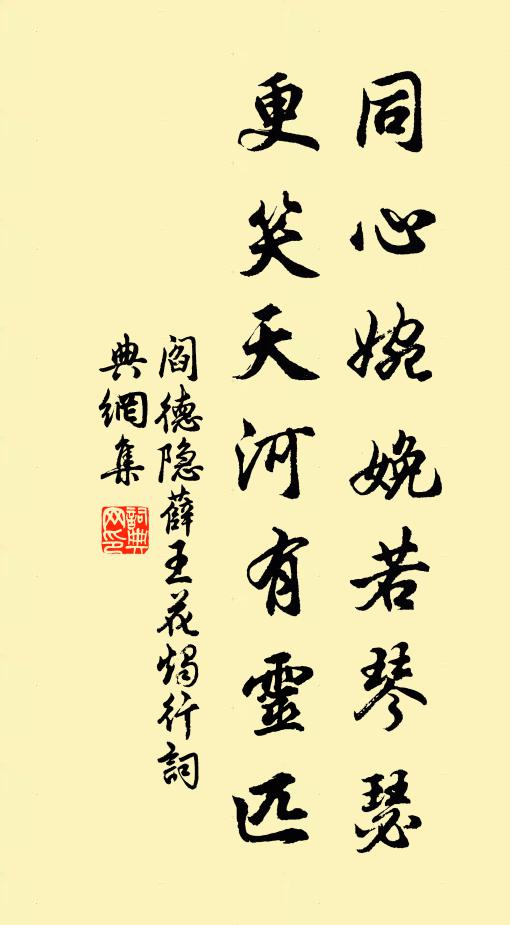 同心婉娩若琴瑟
更笑天河有靈匹
閻德隐薛王花燭行詞
典網集
詞典
网印